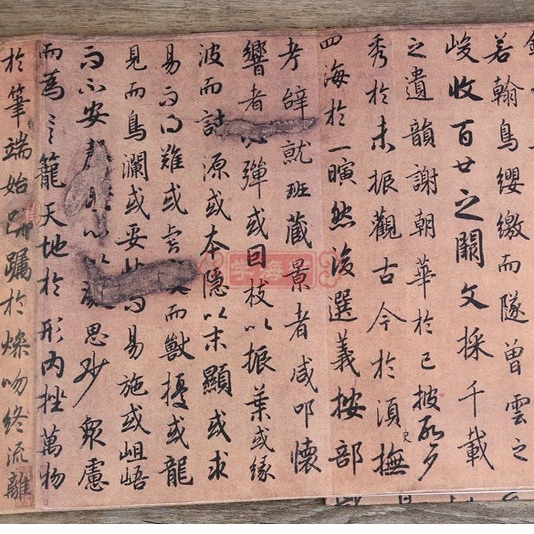 若翰鳥纓繳而隧曾雲之
峻收百廿之闕文採千載
之遺韻謝朝華於已披啟夕
秀於未振觀古今於須臾撫
四海於一瞚然後選義按部
考辭就班藏景者咸叩懷
響者彈或因枝以振葉或緣
波而討源或本隱以末顯或求
易而得難或虎而獸擾或龍
見而鳥瀾或妥帖而易施或岨峿
而不安心以凝思眇眾慮
而為言籠天地於形內挫萬物
於筆端始躑躅於燥吻終流離